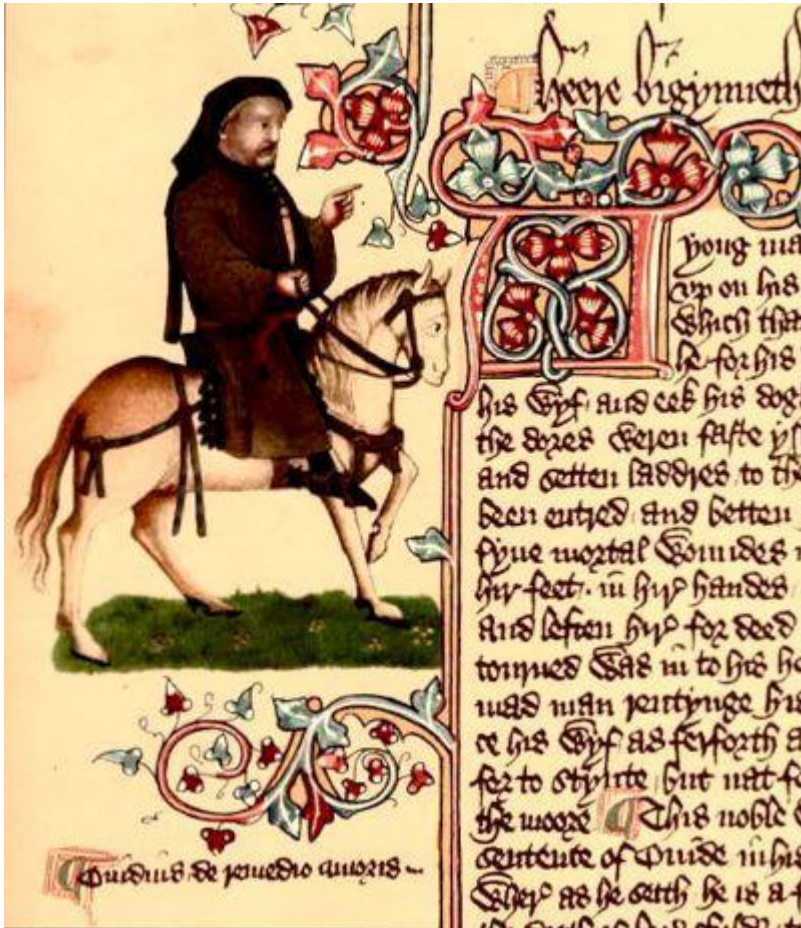 heere bigynneth
A yong ma
vp on his
Which that
he for his
his Wyf and eek his dog
the dores weren faste ys
and setten laddres to the
been entred and betten
fyue mortal Woundes
hir feet . in hir handes
And leften hir for deed
tourned Was in to his
mad man rentynge his
ce his Wyf as ferforth a
for to stynte but nat fo
the moore This noble
sentence of Ouide in his
Wher as he seith he is a f
Ouidius de remedio amoris